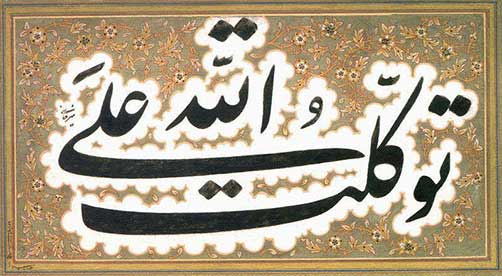 توکّلتُ علَی اللّه